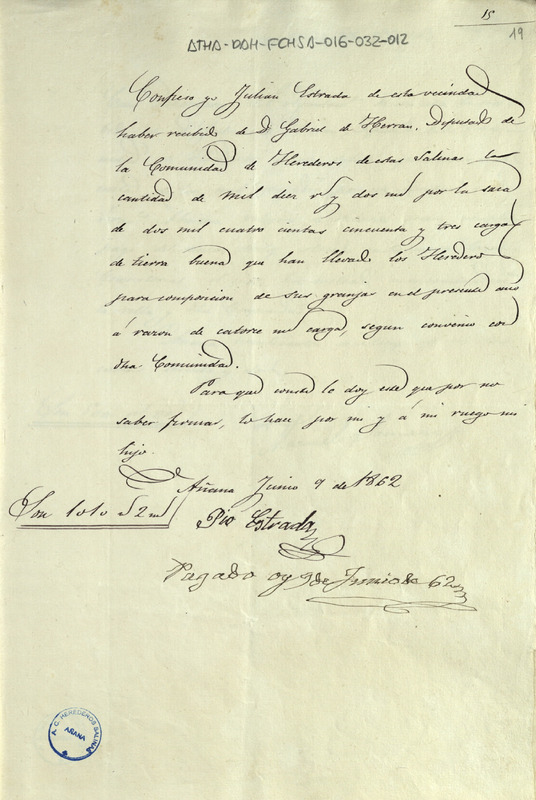 15
19
ATHA-DAH-FCHSA-016-032-012
Confieso yo Julian Estrada de esta vecindad
haber recibido de D. Gabriel de Herran, Deputado de
la Comunidad de Herederos de estas Salinas la
cantidad de mil diez rs y dos mrs por la saca
de dos mil cuatro cientas cincuenta y tres cargas
de tierra buena que han llevado los Herederos
para composicion de sus granjas en el presente año
á razon de catorce mrs carga, segun convenio con
dha Comunidad.
Para que conste lo doy este que por no
saber firmar, lo hace por mi y á mi ruego mi
hijo.
Añana Junio 9 de 1862
Son 1010 rs 2 mrs
Pio Estrada
Pagado oy 9 de Junio de 62
A. C. HEREDEROS SALINAS
AÑANA